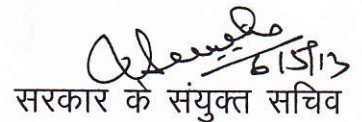 6/5/13
सरकार के संयुक्त सचिव